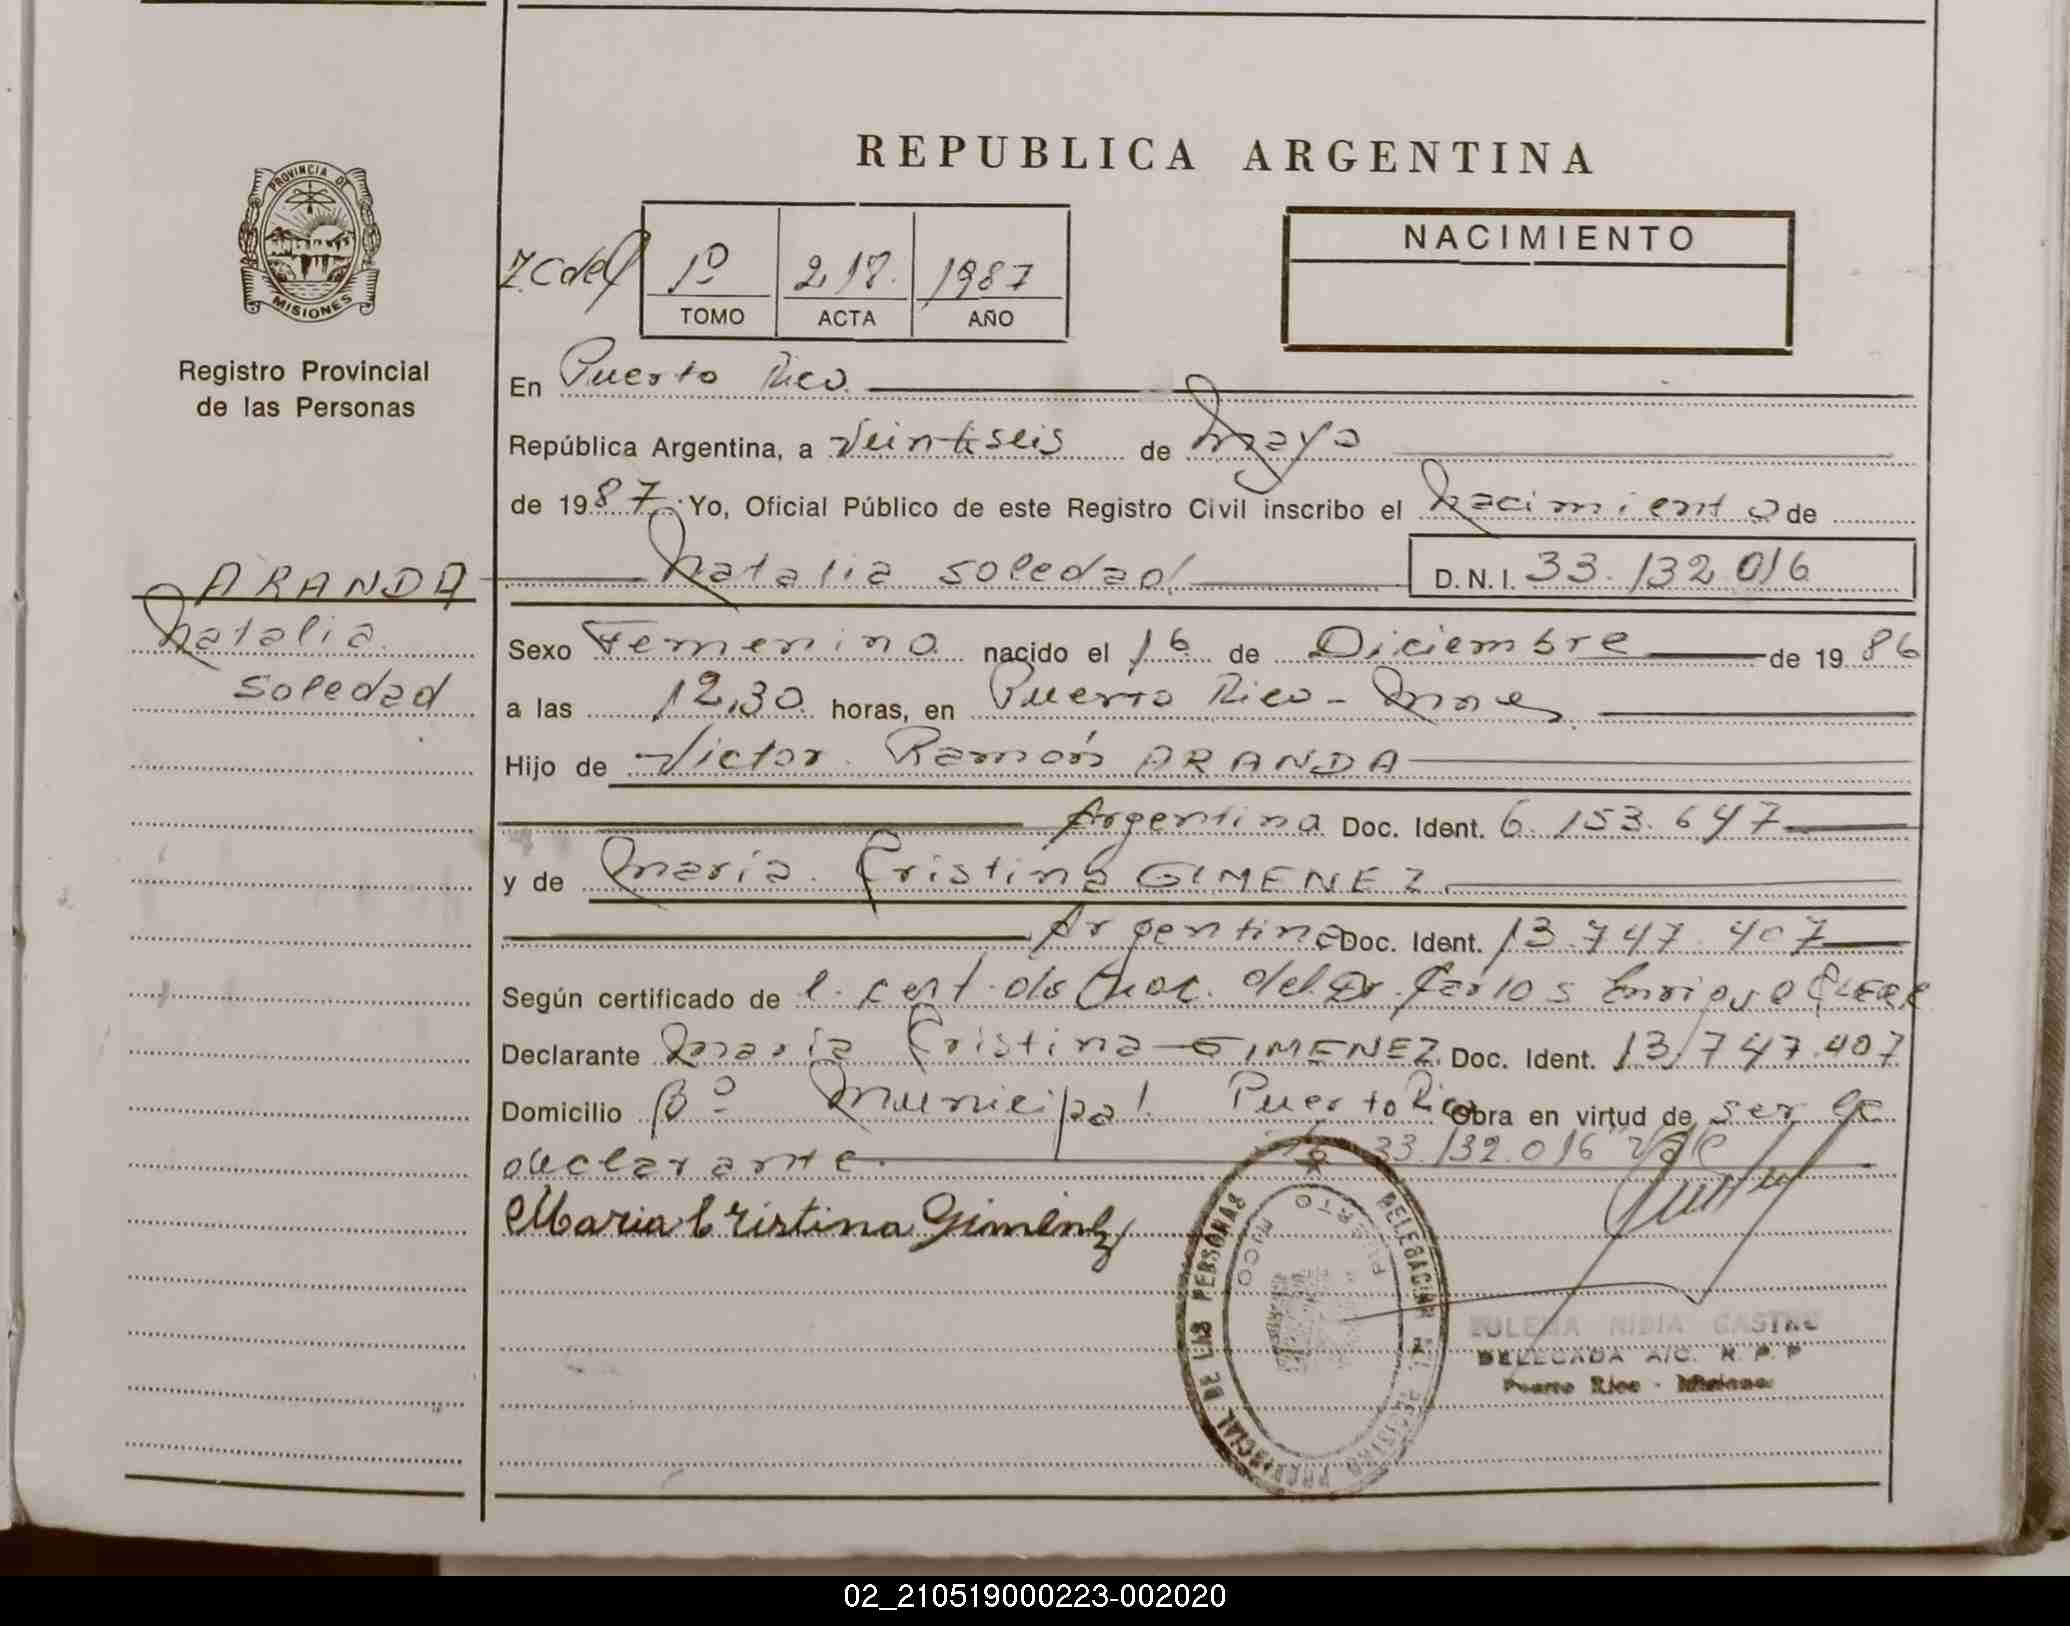 REPUBLICA ARGENTINA
PROVINCIA DE
MISIONES
Registro Provincial
de las Personas
NACIMIENTO
1º 218. 1987
TOMO ACTA AÑO
En Puerto Rico
República Argentina, a Veintiseis de Mayo
de 1987. Yo, Oficial Público de este Registro Civil inscribo el Nacimiento de
ARANDA
Natalia
Soledad
Natalia Soledad D.N.I. 33.132.016
Sexo Femenino nacido el 16 de Diciembre de 1986
a las 12,30 horas, en Puerto Rico - Mnes
Hijo de Victor Ramón ARANDA
Argentina Doc. Ident. 6.153.647
y de María Cristina GIMENEZ
Argentina Doc. Ident. 13.747.407
Según certificado de del Dr. Carlos Enrique
Declarante María Cristina GIMENEZ Doc. Ident. 13.747.407
Domicilio Bº Municipal Puerto Rico Obra en virtud de ser la
declarante. 33.132.016 "Vale
Maria Cristina Gimenez
DELEGACION DEL REGISTRO PROVINCIAL DE LAS PERSONAS
PUERTO RICO
NIDIA CASTRO
DELEGADA A/C. R. P. P
Puerto Rico - Misiones
02_210519000223-002020